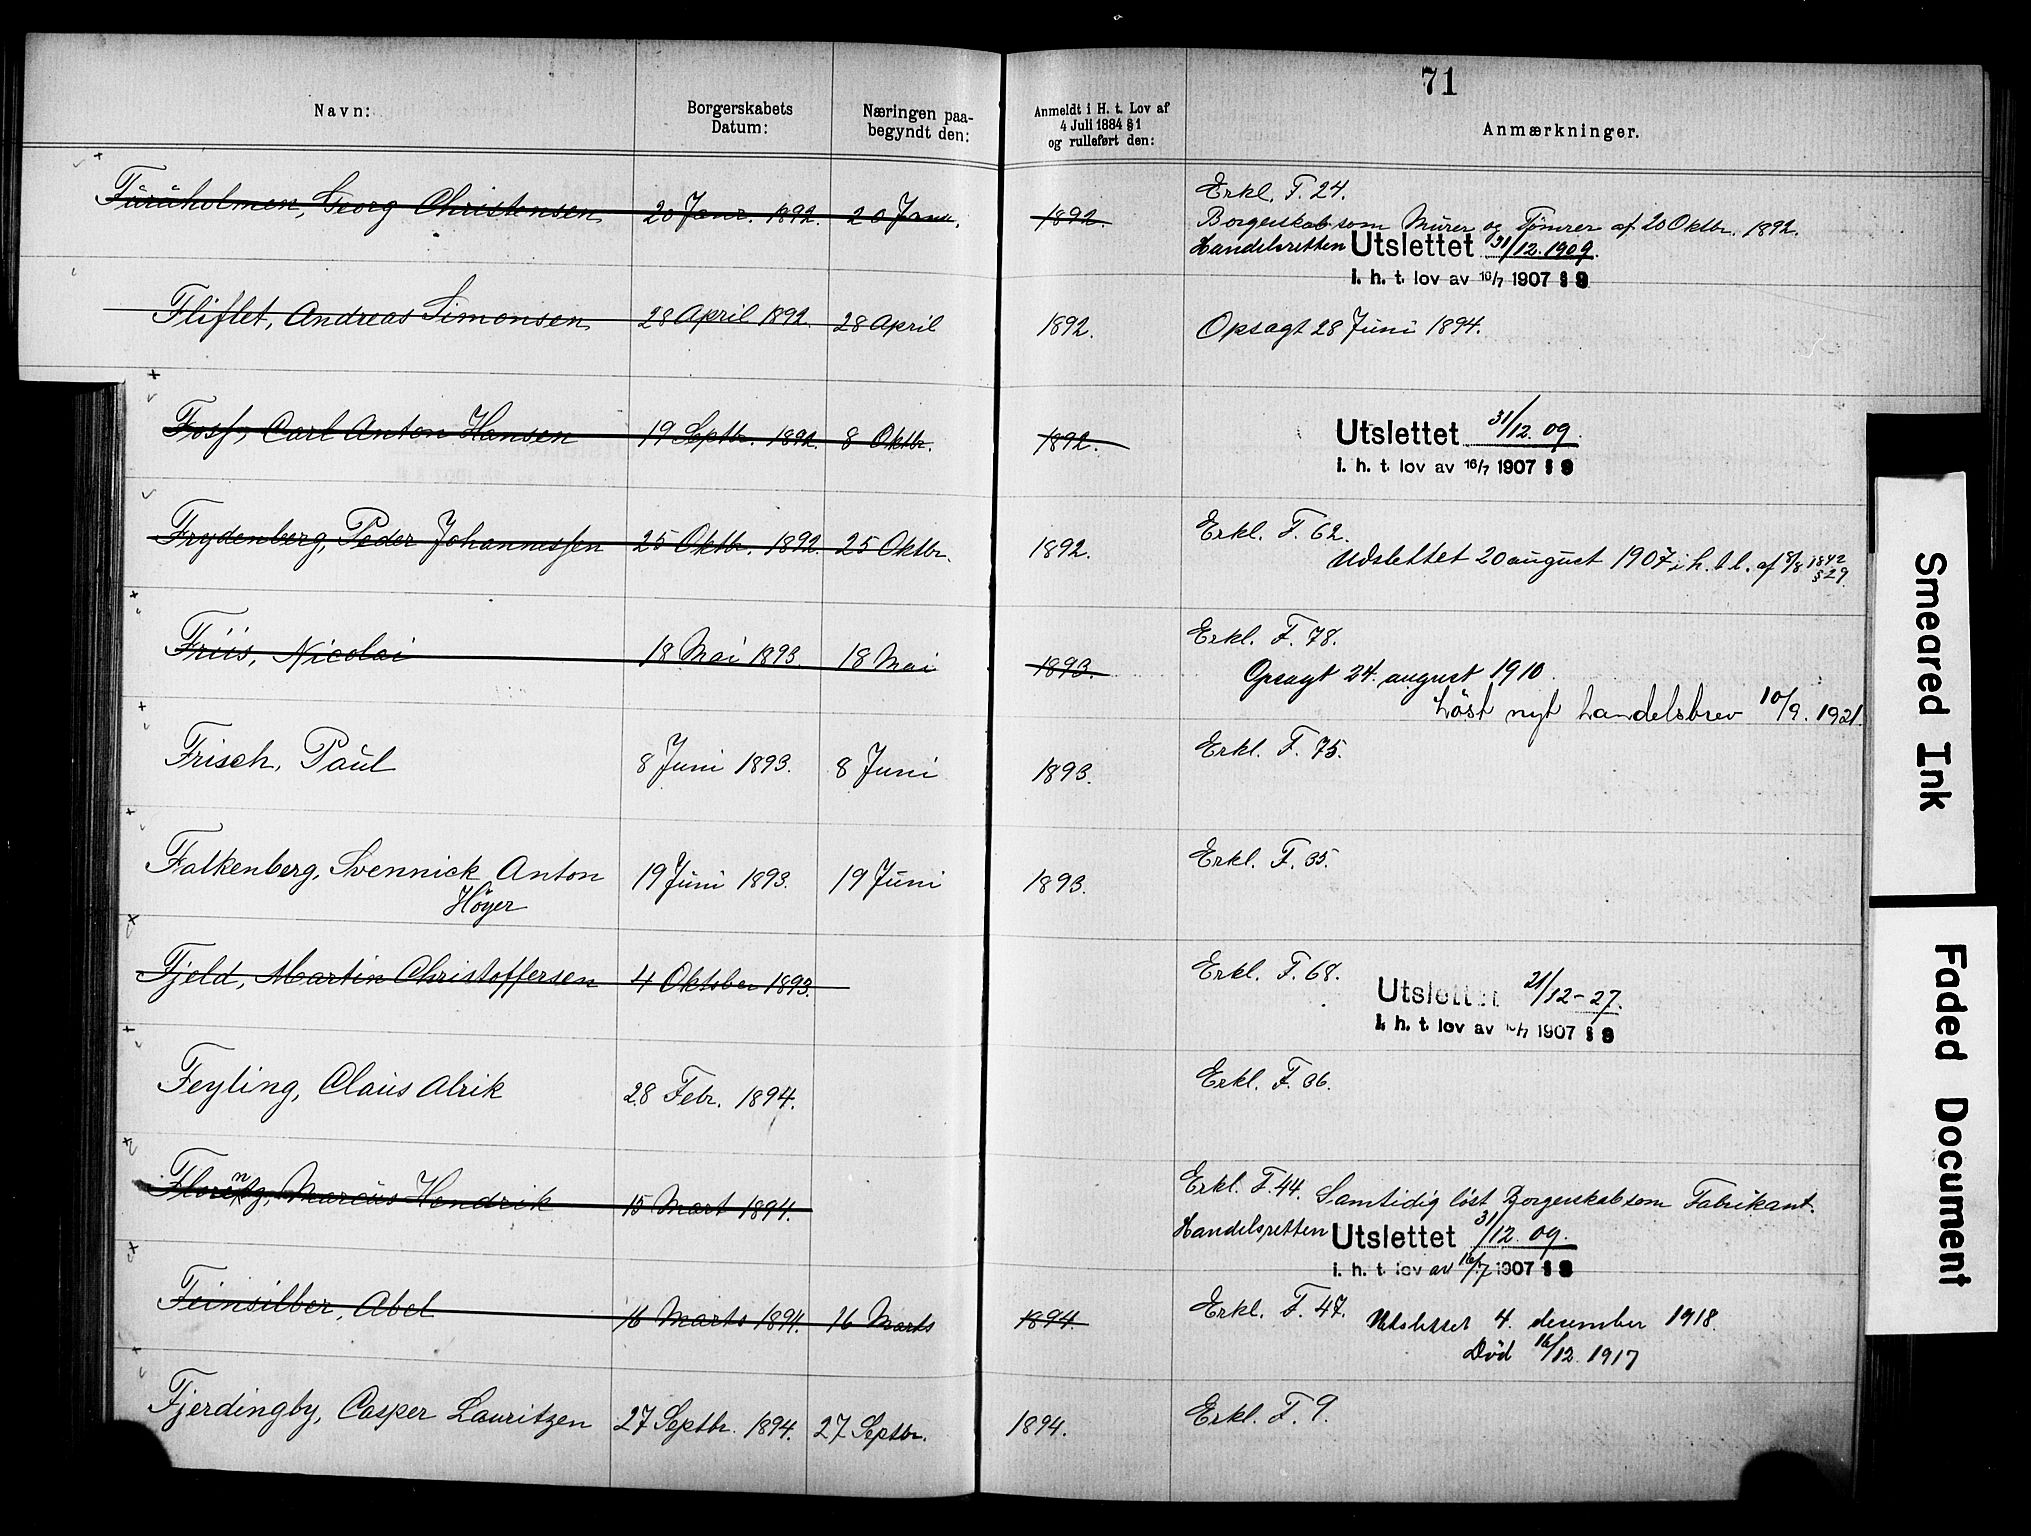 71
Navn: Borgerskabets Datum: Næringen paabegyndt den: Anmeldt i H. t. Lov af 4 Juli 1884 § 1 og rulleført den: Anmærkninger.
Furuholmen, Georg Christensen 20 Janr. 1892. 20 Janu. 1892. Erkl. F. 24.
Borgerskab som Murer og Tømrer af 20 Oktbr. 1892.
Handelsretten Utslettet 31/12. 1909.
i. h. t. lov av 16/7 1907 § 9
Fliflet, Andreas Simonsen 28 April 1892. 28 April 1892. Opsagt 28 Juni 1894.
Foss, Carl Anton Hansen 19 Septbr. 1892. 8 Oktbr. 1892. Utslettet 31/12. 09.
i. h. t. lov av 16/7 1907 § 9
Frydenberg, Peder Johannessen 25 Oktbr. 1892. 25 Oktbr. 1892. Erkl. F. 62.
Udslettet 20 august 1907 i h. t. l. af 8/8 1842 § 29.
Friis, Nicolai 18 Mai 1893. 18 Mai 1893. Erkl. F. 78.
Opsagt 24. august 1910.
Löst nyt handelsbrev 10/9. 1921.
Frisch, Paul 8 Juni 1893. 8 Juni 1893. Erkl. F. 75.
Falkenberg, Svennick Anton 19 Juni 1893. 19 Juni 1893. Erkl. F. 35.
Höyer
Fjeld, Martin Christoffersen 4 Oktober 1893. Erkl. F. 68.
Utslettet 21/12-27.
i. h. t. lov av 16/7 1907 § 9
Feyling, Claus Alrik 28 Febr. 1894. Erkl. F. 36.
Florentz, Marcus Hendrik 15 Mart 1894. Erkl. F. 44. Samtidig löst Borgerskab som Fabrikant.
Handelsretten Utslettet 31/12. 09.
i. h. t. lov av 16/7 1907 § 9
Feinsilber, Abel 16 Marts 1894. 16 Marts 1894. Erkl. F. 47. Utslettet 4. desember 1918.
Död 16/12. 1917
Fjerdingby, Casper Lauritzen 27 Septbr. 1894. 27 Septbr. 1894. Erkl. F. 9.
Smeared Ink
Faded Document